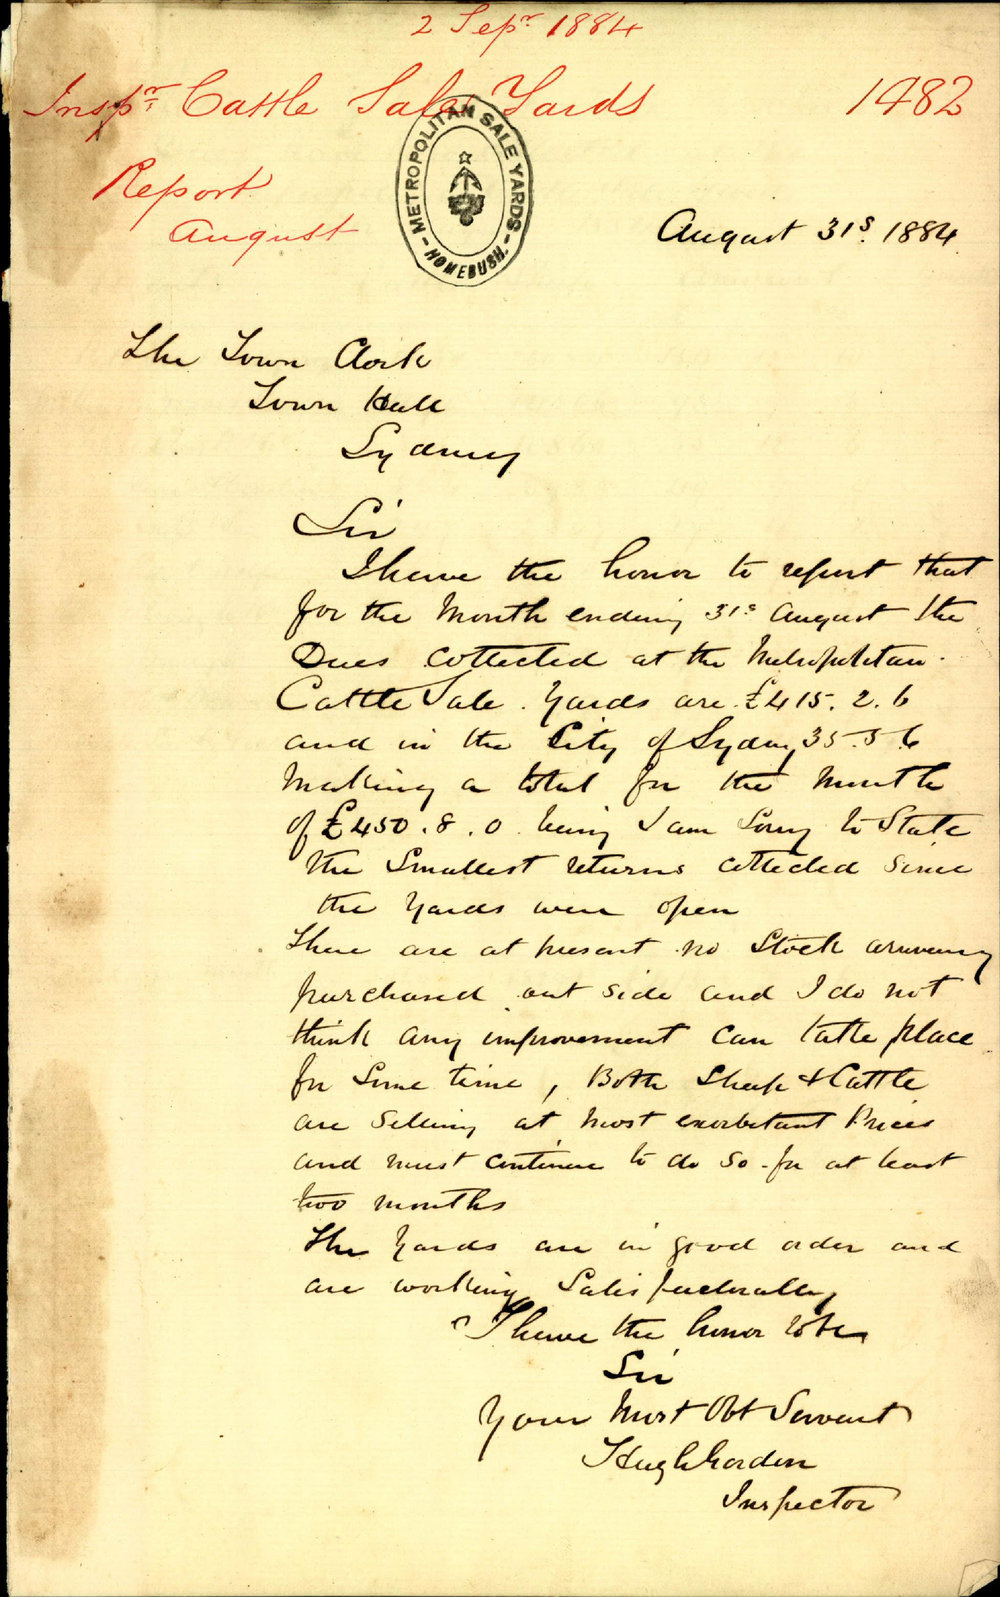 2 Sepr 1884
Inspr Cattle Sale Yards 1482
METROPOLITAN SALE YARDS
- HOMEBUSH. -
Report
August
August 31s. 1884
The Town Clerk
Town Hall
Sydney
Sir
I have the honor to report that
for the Month ending 31s August the
Dues collected at the Metropolitan
Cattle Sale Yards are £415. 2. 6
and in the City of Sydney 35. 5 6
Making a total for the Month
of £450. 8. 0 being I am Sorry to State
the Smallest returns collected Since
the Yards were open
There are at present no Stock arriving
purchased out side and I do not
think any improvement can take place
for Some time, Both Sheep & Cattle
are Selling at most exorbetant Prices
and must continue to do so for at least
two months
The Yards are in good order and
are working Satisfactorally
I have the honor to be
Sir
Your Most Obt Servant
Hugh Gordon
Inspector